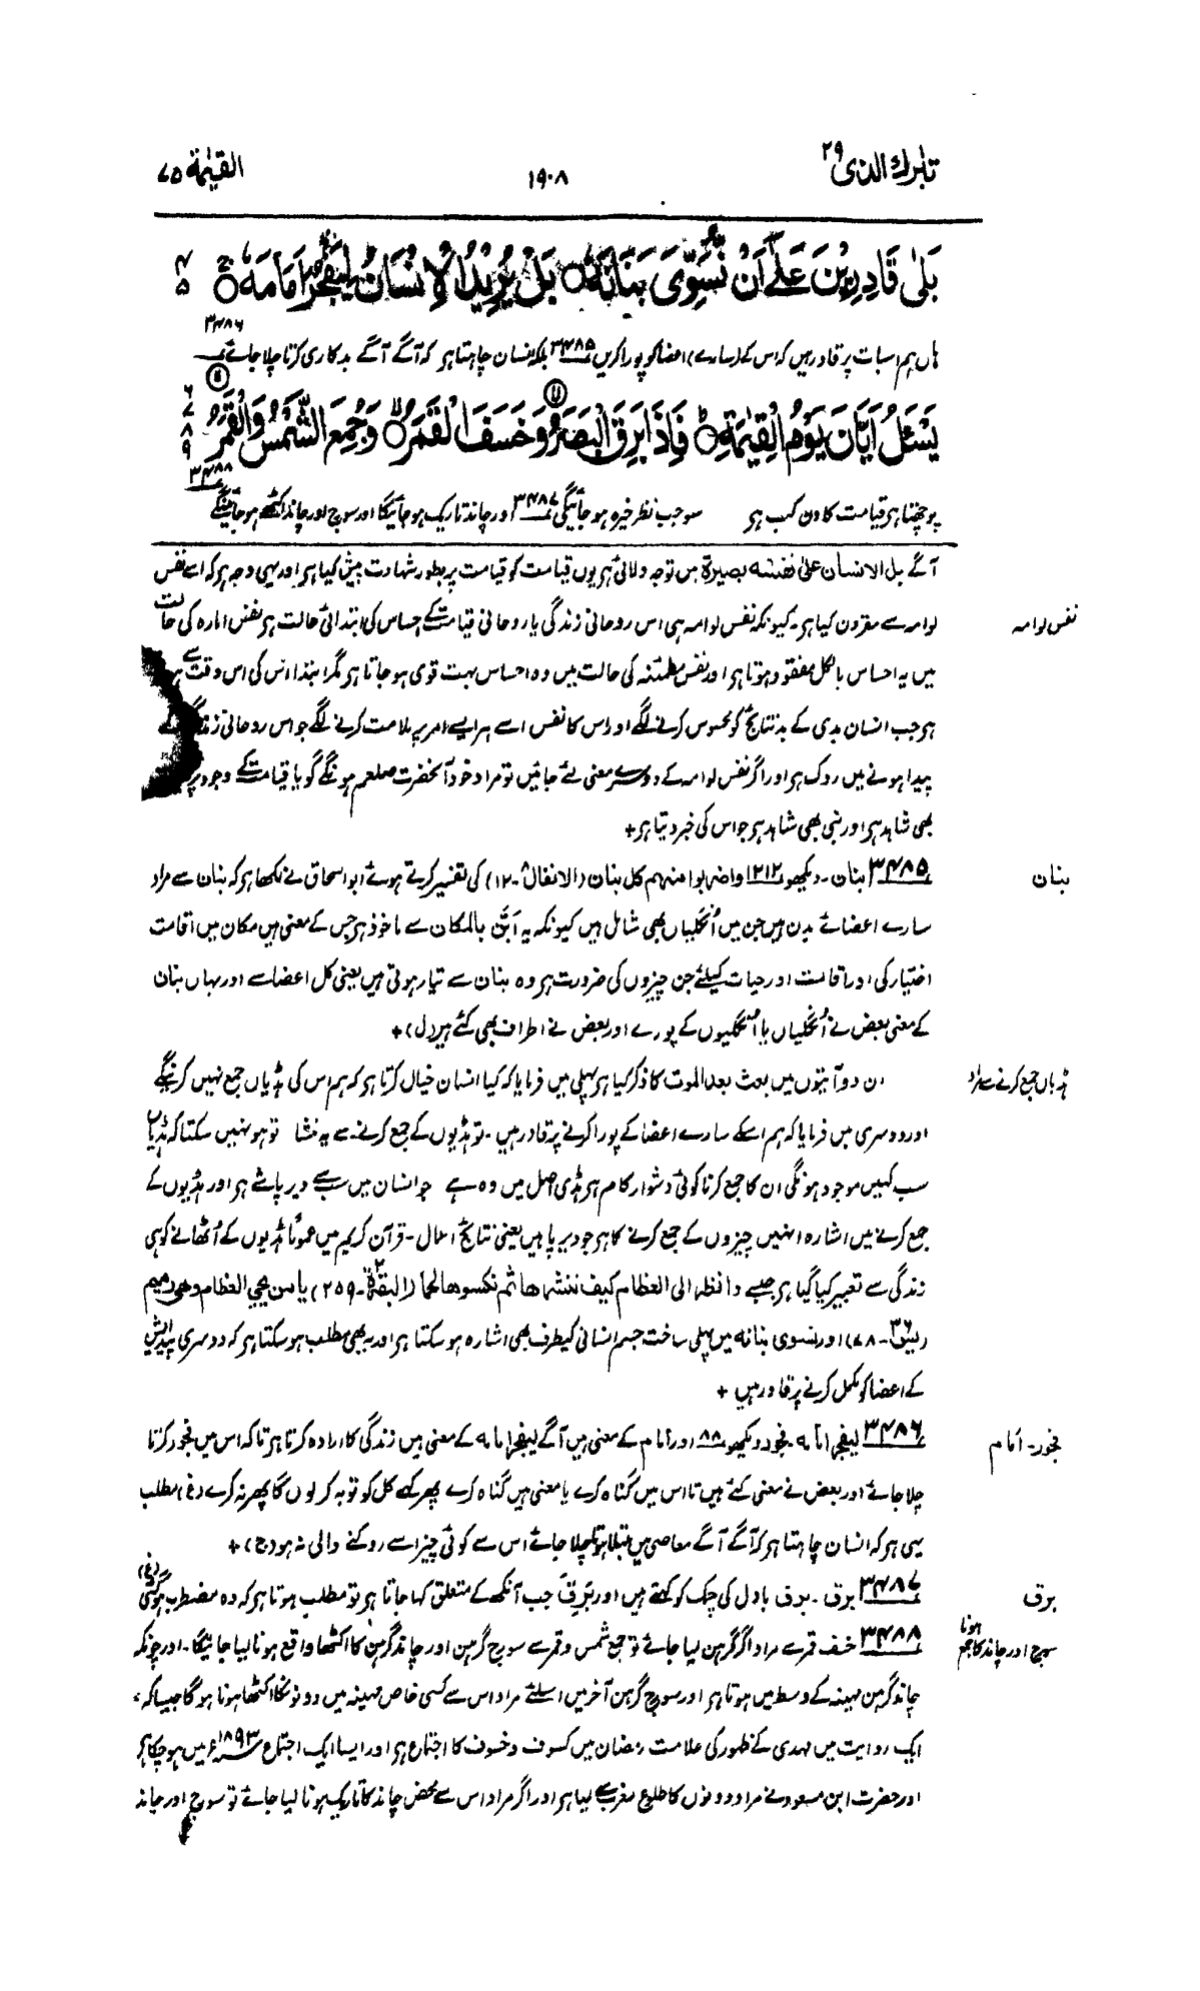 تبٰرك الذى ۲۹
۱۹۰۸
القیٰمة ۷۵
بَلٰى قَادِرِيْنَ عَلٰٓى اَنْ نُّسَوِّىَ بَنَانَهٗ بَلْ يُرِيْدُ الْاِنْسَانُ لِيَفْجُرَ اَمَامَهٗ
۴
۵
ہاں ہم اس بات پر قادر ہیں کہ اس کے (سارے) اعضا کو پورا کریں ۳۴۸۵ بلکہ انسان چاہتا ہے کہ آگے آگے بدکاری کرتا چلا جائے ۳۴۸۶
يَسْـَٔلُ اَيَّانَ يَوْمُ الْقِيٰمَةِ فَاِذَا بَرِقَ الْبَصَرُ وَخَسَفَ الْقَمَرُ وَجُمِعَ الشَّمْسُ وَالْقَمَرُ
۶
۷
۸
۹
پوچھتا ہے قیامت کا دن کب ہے سو جب نظر خیرہ ہو جائیگی ۳۴۸۷ اور چاند تاریک ہو جائیگا اور سورج اور چاند اکٹھے ہو جائینگے ۳۴۸۸
آگے بل الانسان علیٰ نفسہ بصیرة میں توجہ دلائی ہے یوں قیامت کو قیامت پر بطور شہادت پیش کیا ہے اور یہی وجہ ہے کہ اسے نفس
نفس لوامہ
لوامہ سے مقرون کیا ہے۔ کیونکہ نفس لوامہ ہی اس روحانی زندگی یا روحانی قیامت کے احساس کی ابتدائی حالت ہے نفس امارہ کی حالت
میں یہ احساس بالکل مفقود ہوتا ہے اور نفس مطمئنہ کی حالت میں وہ احساس بہت قوی ہو جاتا ہے مگر ابتدا اس کی اس وقت سے
ہے جب انسان بدی کے بد نتائج کو محسوس کرنے لگے اور اس کا نفس اسے ہر ایسے امر پر ملامت کرنے لگے جو اس روحانی زندگی کے
پیدا ہونے میں روک ہے اور اگر نفس لوامہ کے دوسرے معنی لئے جائیں تو مراد خود آنحضرت صلعم ہونگے گویا قیامت کے وجود پر
بھی شاہد ہے اور نبی بھی شاہد ہے جو اس کی خبر دیتا ہے +
بنان
۳۴۸۵ بنان۔ دیکھو ۱۲۱۲ واضربوا منہم کل بنان (الانفال ۸۔۱۲) کی تفسیر کرتے ہوئے ابو اسحاق نے لکھا ہے کہ بنان سے مراد
سارے اعضائے بدن ہیں جن میں اُنگلیاں بھی شامل ہیں کیونکہ یہ اَبَنَّ بالمکان سے ماخوذ ہے جس کے معنی ہیں مکان میں اقامت
اختیار کی اور اقامت اور حیات کیلئے جن چیزوں کی ضرورت ہے وہ بنان سے تیار ہوتی ہیں یعنی کل اعضا سے اور یہاں بنان
کے معنی بعض نے اُنگلیاں یا اُنگلیوں کے پورے اور بعض نے اطراف بھی کئے ہیں (ل) +
ہڈیاں جمع کرنے سے مراد
ان دو آیتوں میں بعث بعد الموت کا ذکر کیا ہے پہلی میں فرمایا کہ کیا انسان خیال کرتا ہے کہ ہم اس کی ہڈیاں جمع نہیں کرینگے
اور دوسری میں فرمایا کہ ہم اسکے سارے اعضا کے پورا کرنے پر قادر ہیں۔ تو ہڈیوں کے جمع کرنے سے یہ منشا تو ہو نہیں سکتا کہ ہڈیاں
سب کہیں موجود ہونگی ان کا جمع کرنا کوئی دشوار کام ہے ہڈی اصل میں وہ ہے جو انسان میں سب سے دیرپا شے ہے اور ہڈیوں کے
جمع کرنے میں اشارہ انہیں چیزوں کے جمع کرنے کا ہے جو دیرپا ہیں یعنی نتائج اعمال۔ قرآن کریم میں عموماً ہڈیوں کے اُٹھانے کو ہی
زندگی سے تعبیر کیا گیا ہے جیسے وانظر الی العظام کیف ننشزھا ثم نکسوھا لحما (البقرة ۲۔۲۵۹) یا من یحی العظام وھی رمیم
(یٰسٓ ۳۶۔۷۸) اور نسوی بنانه میں پہلی ساخت جسم انسانی کیطرف بھی اشارہ ہو سکتا ہے اور یہ بھی مطلب ہو سکتا ہے کہ دوسری پیدائش
کے اعضا کو مکمل کرنے پر قادر ہیں +
فجور۔ اَمَام
۳۴۸۶ لیفجر امامہ۔ فجور دیکھو ۸۸ اور اَمَام کے معنی ہیں آگے لیفجر امامہ کے معنی ہیں زندگی کا ارادہ کرتا ہے تاکہ اس میں فجور کرتا
چلا جائے اور بعض نے معنی کئے ہیں تا اس میں گناہ کرے یا معنی ہیں گناہ کرے پھر کہے کل کو توبہ کر لوں گا پھر نہ کرے (غ) مطلب
یہی ہے کہ انسان چاہتا ہے کہ آگے آگے معاصی میں مبتلا ہوتا چلا جائے اس سے کوئی چیز اسے روکنے والی نہ ہو (ج) +
برق
۳۴۸۷ برق۔ برق بادل کی چمک کو کہتے ہیں اور بَرِقَ جب آنکھ کے متعلق کہا جاتا ہے تو مطلب ہوتا ہے کہ وہ مضطرب ہو گئی (غ)
سورج اور چاند کا جمع ہونا
۳۴۸۸ خسف قمر سے مراد اگر گرہن لیا جائے تو جمع شمس و قمر سے سورج گرہن اور چاند گرہن کا اکٹھا واقع ہونا لیا جائیگا۔ اور چونکہ
چاند گرہن مہینہ کے وسط میں ہوتا ہے اور سورج گرہن آخر میں اسلئے مراد اس سے کسی خاص مہینہ میں دونو نکا اکٹھا ہونا ہو گا جیسا کہ
ایک روایت میں مہدی کے ظہور کی علامت رمضان میں کسوف و خسوف کا اجتماع ہے اور ایسا ایک اجتماع ۱۸۹۳ء میں ہو چکا ہے
اور حضرت ابن مسعود نے مراد دونوں کا طلوع مغرب سے لیا ہے اور اگر مراد اس سے محض چاند کا تاریک ہونا لیا جائے تو سورج اور چاند